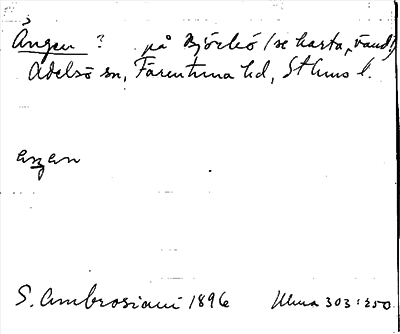 Ängen ? på Björkö (se karta, vänd!)
Adelsö sn, Färentuna hd, Sthlms l.
aŋen
S. Ambrosiani 1896 Ulma 303:250